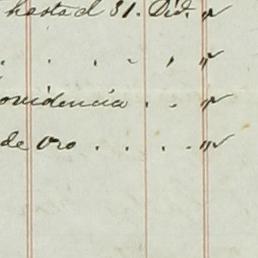 hasta el 31. Dic. "
. . . . "
ovidencia . . "
de oro . . . . "